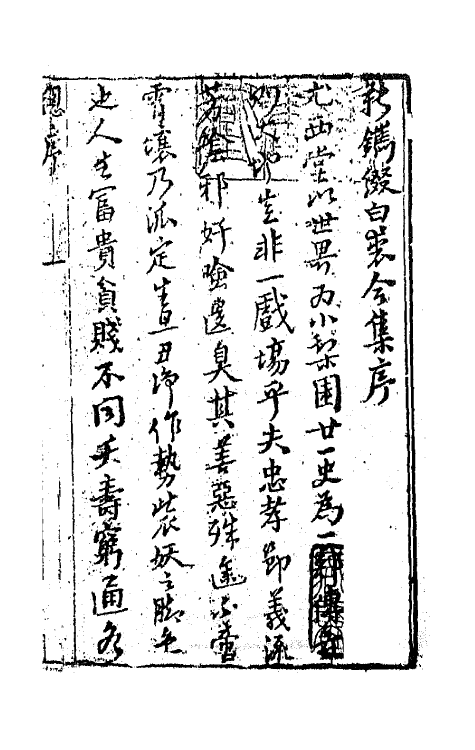 新鐫綴白裘合集序
尤西堂以世界為小梨園廿一史為一
豈非一戲場乎夫忠孝節義流
芳陰邪奸險遺臭其善惡殊途不啻
霄壤乃派定生旦丑淨作勢裝妖之腳色
也人生富貴貧賤不同夭壽窮通各
總序
一